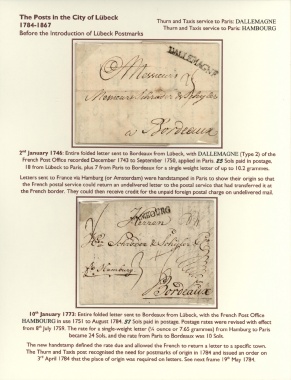 The Posts in the City of Lübeck
1784-1867
Before the Introduction of Lübeck Postmarks
Thurn and Taxis service to Paris: DALLEMAGNE
Thurn and Taxis service to Paris: HAMBOURG
DALLEMAGNE
A Messieurs
Messieurs Schröder & Schyler
a Bordeaux
2nd January 1746: Entire folded letter sent to Bordeaux from Lübeck, with DALLEMAGNE (Type 2) of the
French Post Office recorded December 1743 to September 1750, applied in Paris. 25 Sols paid in postage,
18 from Lübeck to Paris, plus 7 from Paris to Bordeaux for a single weight letter of up to 10.2 grammes.
Letters sent to France via Hamburg (or Amsterdam) were handstamped in Paris to show their origin so that
the French postal service could return an undelivered letter to the postal service that had transferred it at
the French border. They could then receive credit for the unpaid foreign postal charge on undelivered mail.
HAMBOURG
Herren
Schröder & Schyler
Hambourg
Bordeaux
10th January 1773: Entire folded letter sent to Bordeaux from Lübeck, with the French Post Office
HAMBOURG in use 1751 to August 1784. Sols paid in postage. Postage rates were revised with effect
from 8th July 1759. The rate for a single-weight letter (¼ ounce or 7.65 grammes) from Hamburg to Paris
became 24 Sols, and the rate from Paris to Bordeaux was 10 Sols.
The new handstamp defined the rate due and allowed the French to return a letter to a specific town.
The Thurn and Taxis post recognised the need for postmarks of origin in 1784 and issued an order on
3rd April 1784 that the place of origin was required on letters. See next frame 19th May 1784.